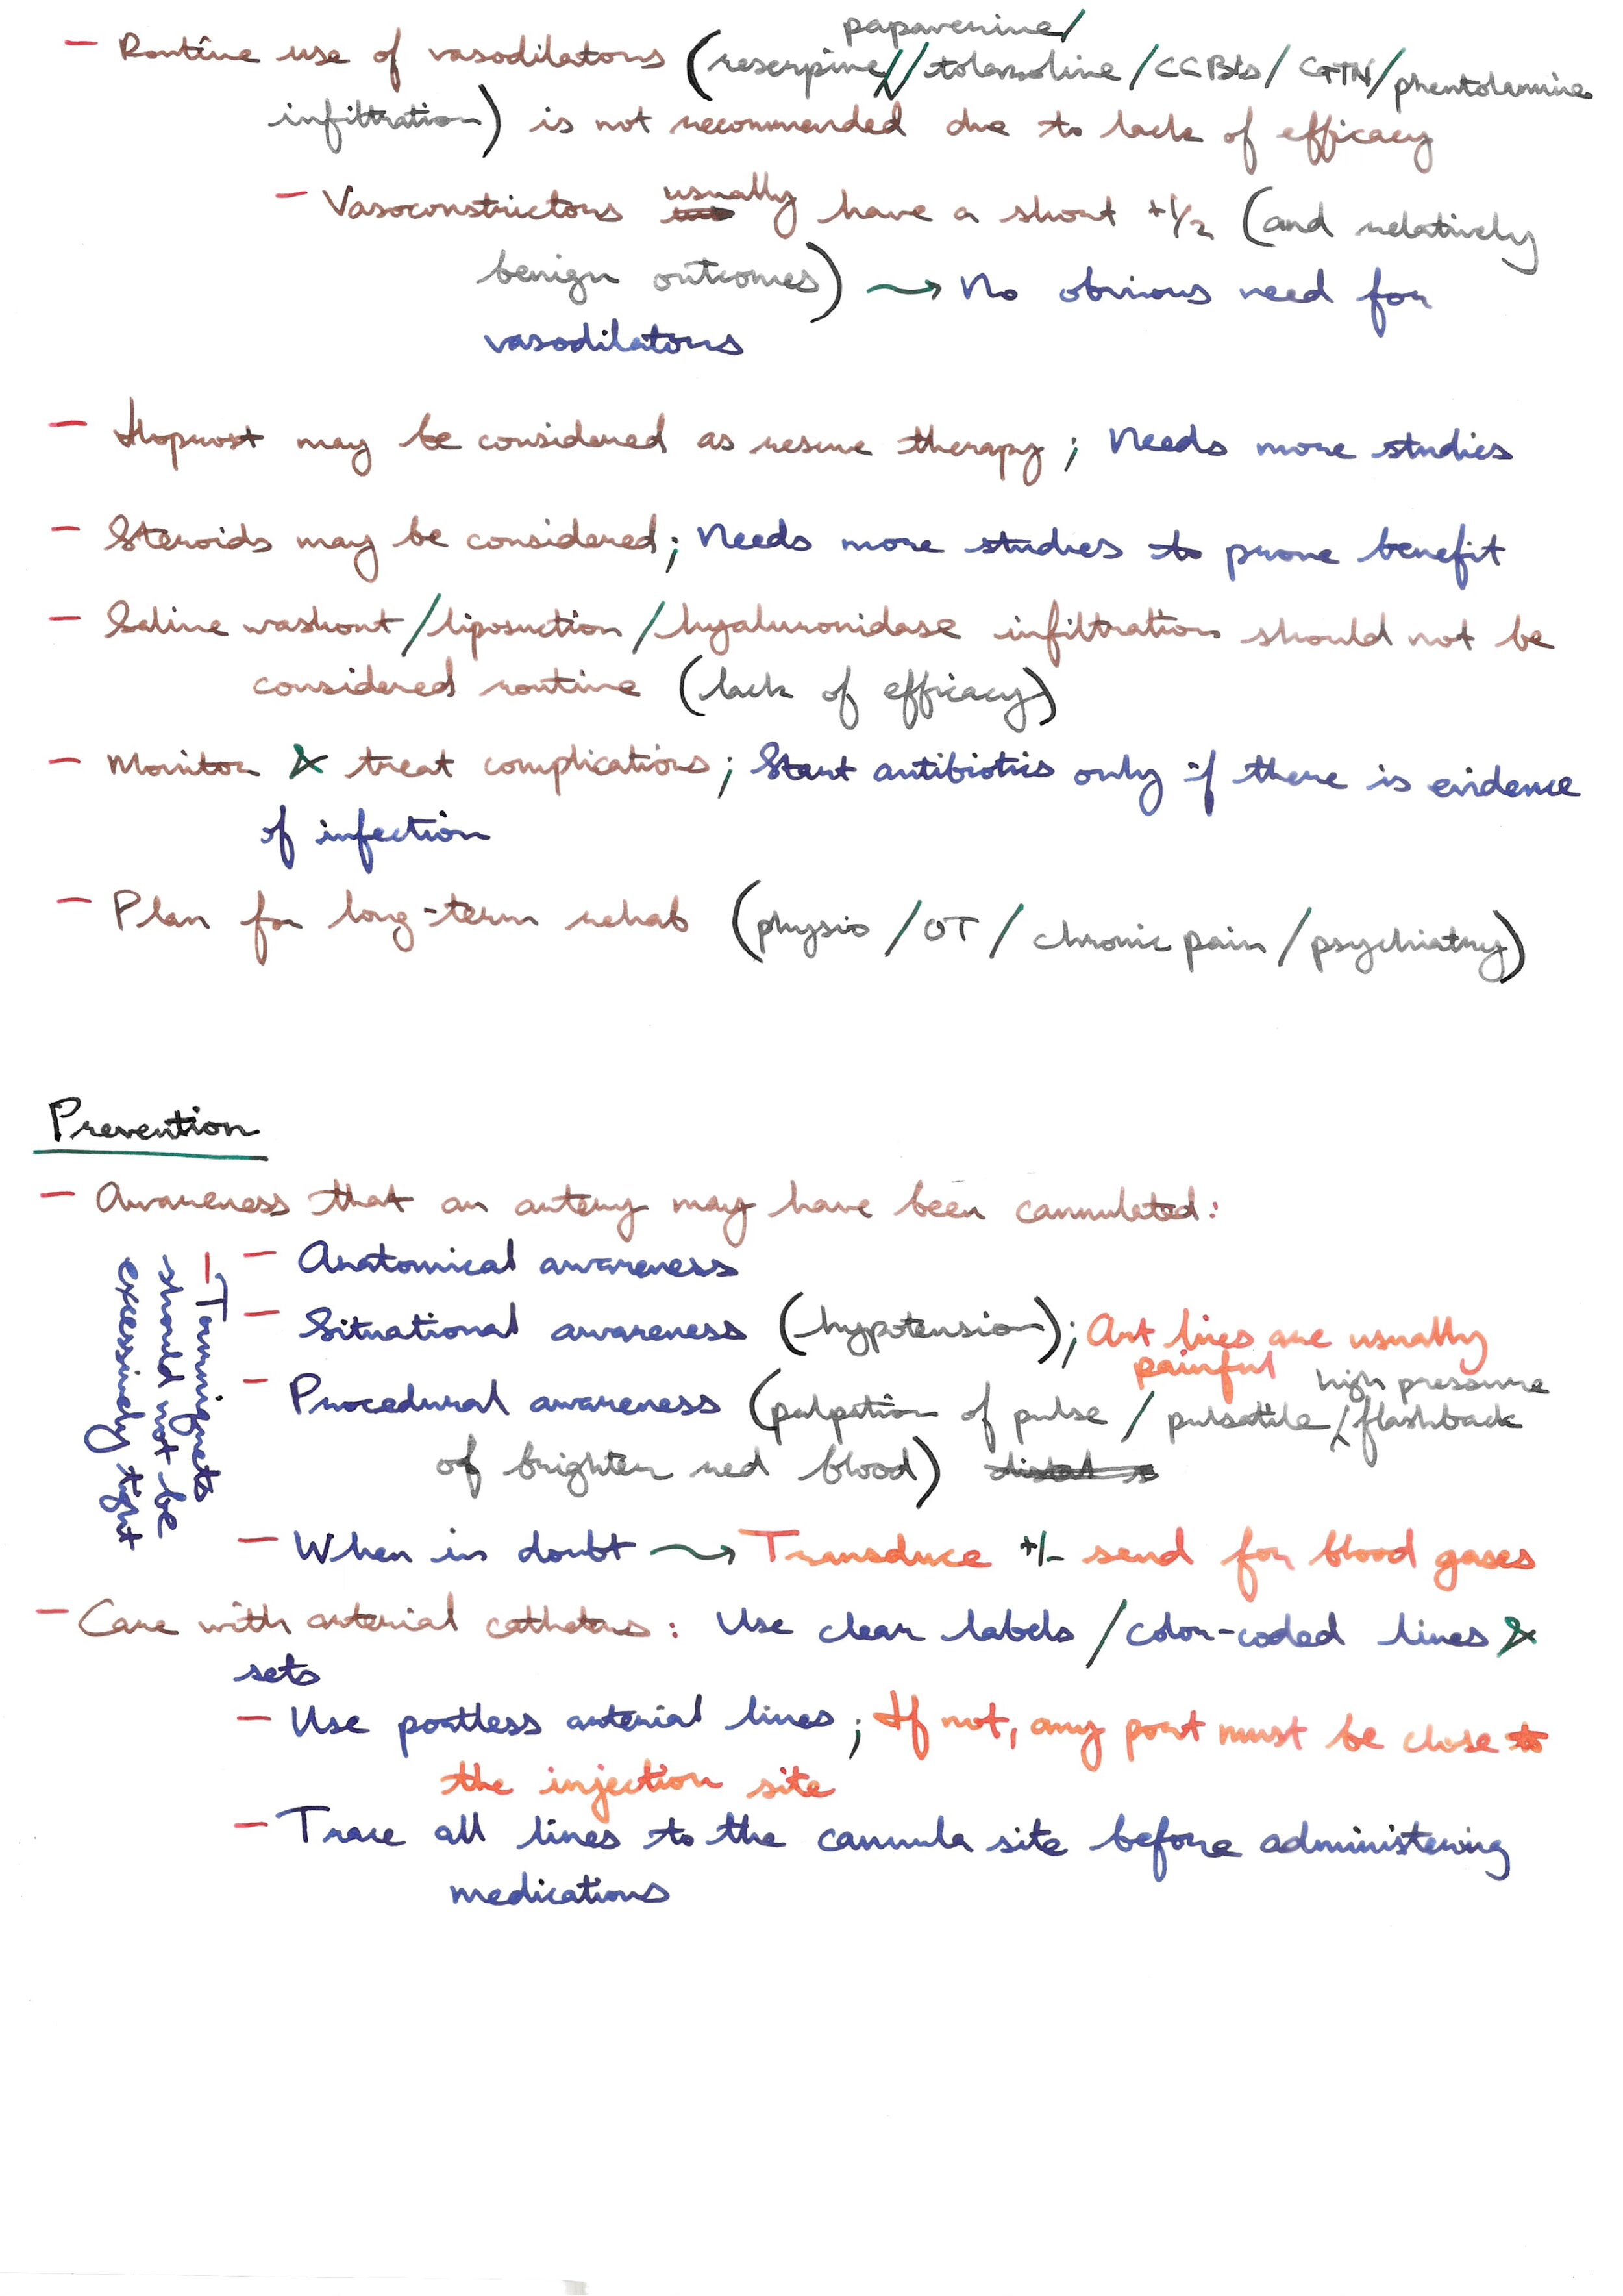 - Routine use of vasodilators (reserpine/papaverine/tolazoline/CCB's/GTN/phentolamine
infiltration) is not recommended due to lack of efficacy
- Vasoconstrictors usually have a short t1/2 (and relatively
benign outcomes) → No obvious need for
vasodilators
- Iloprost may be considered as rescue therapy; Needs more studies
- Steroids may be considered; Needs more studies to prove benefit
- Saline washout/liposuction/hyaluronidase infiltration should not be
considered routine (lack of efficacy)
- Monitor & treat complications; Start antibiotics only if there is evidence
of infection
- Plan for long-term rehab (physio/OT/chronic pain/psychiatry)
Prevention
- Awareness that an artery may have been cannulated:
- Anatomical awareness
- Situational awareness (hypotension); Art lines are usually
painful
- Procedural awareness (palpation of pulse/pulsatile/high pressure flashback
of brighter red blood)
- Tourniquets
should not be
excessively tight
- When in doubt → Transduce +/- send for blood gases
- Care with arterial catheters: Use clear labels/color-coded lines &
sets
- Use portless arterial lines; If not, any port must be close to
the injection site
- Trace all lines to the cannula site before administering
medications